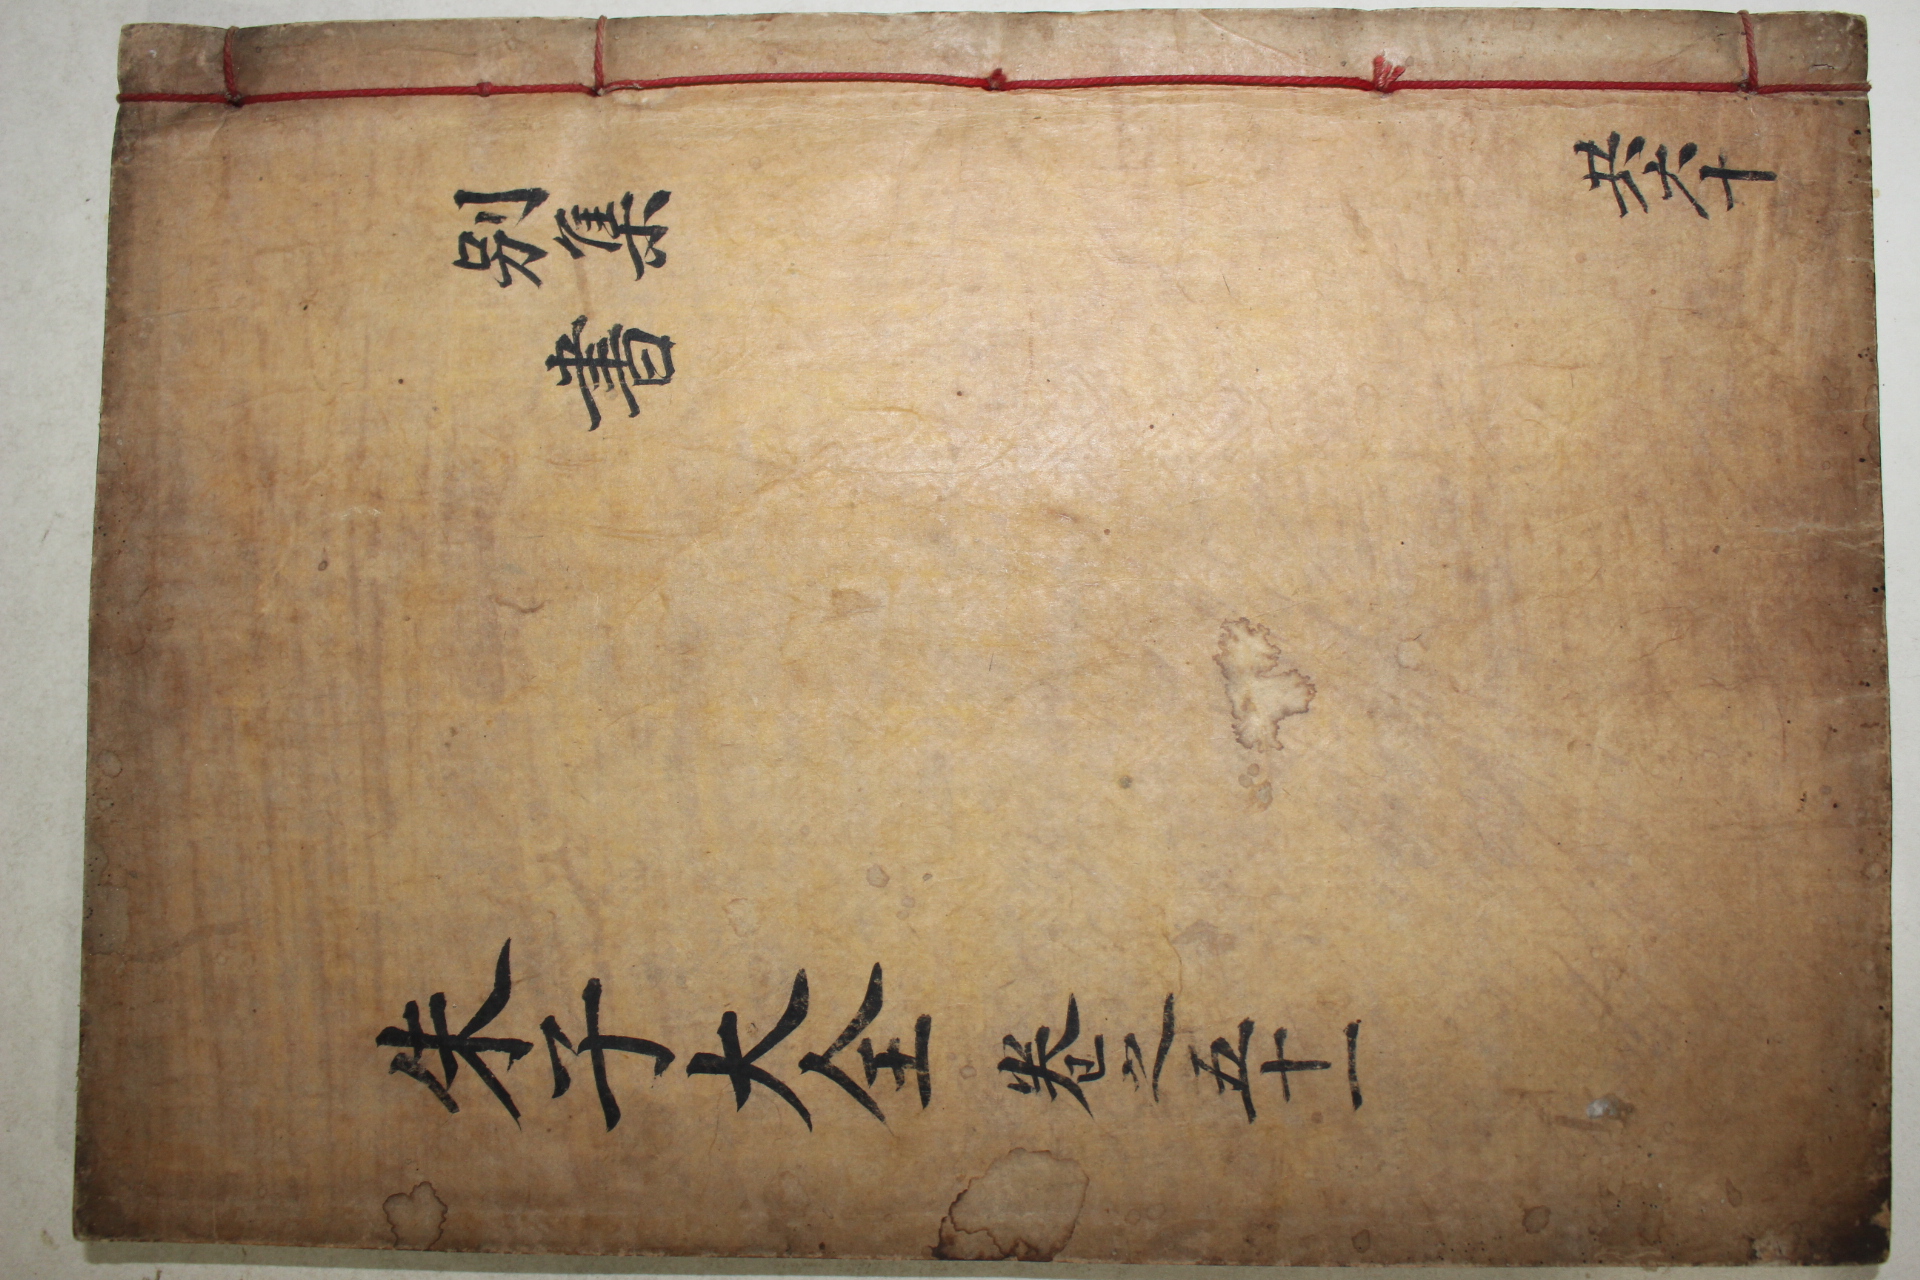 朱子大全 卷之五十一
別集
書
共六十